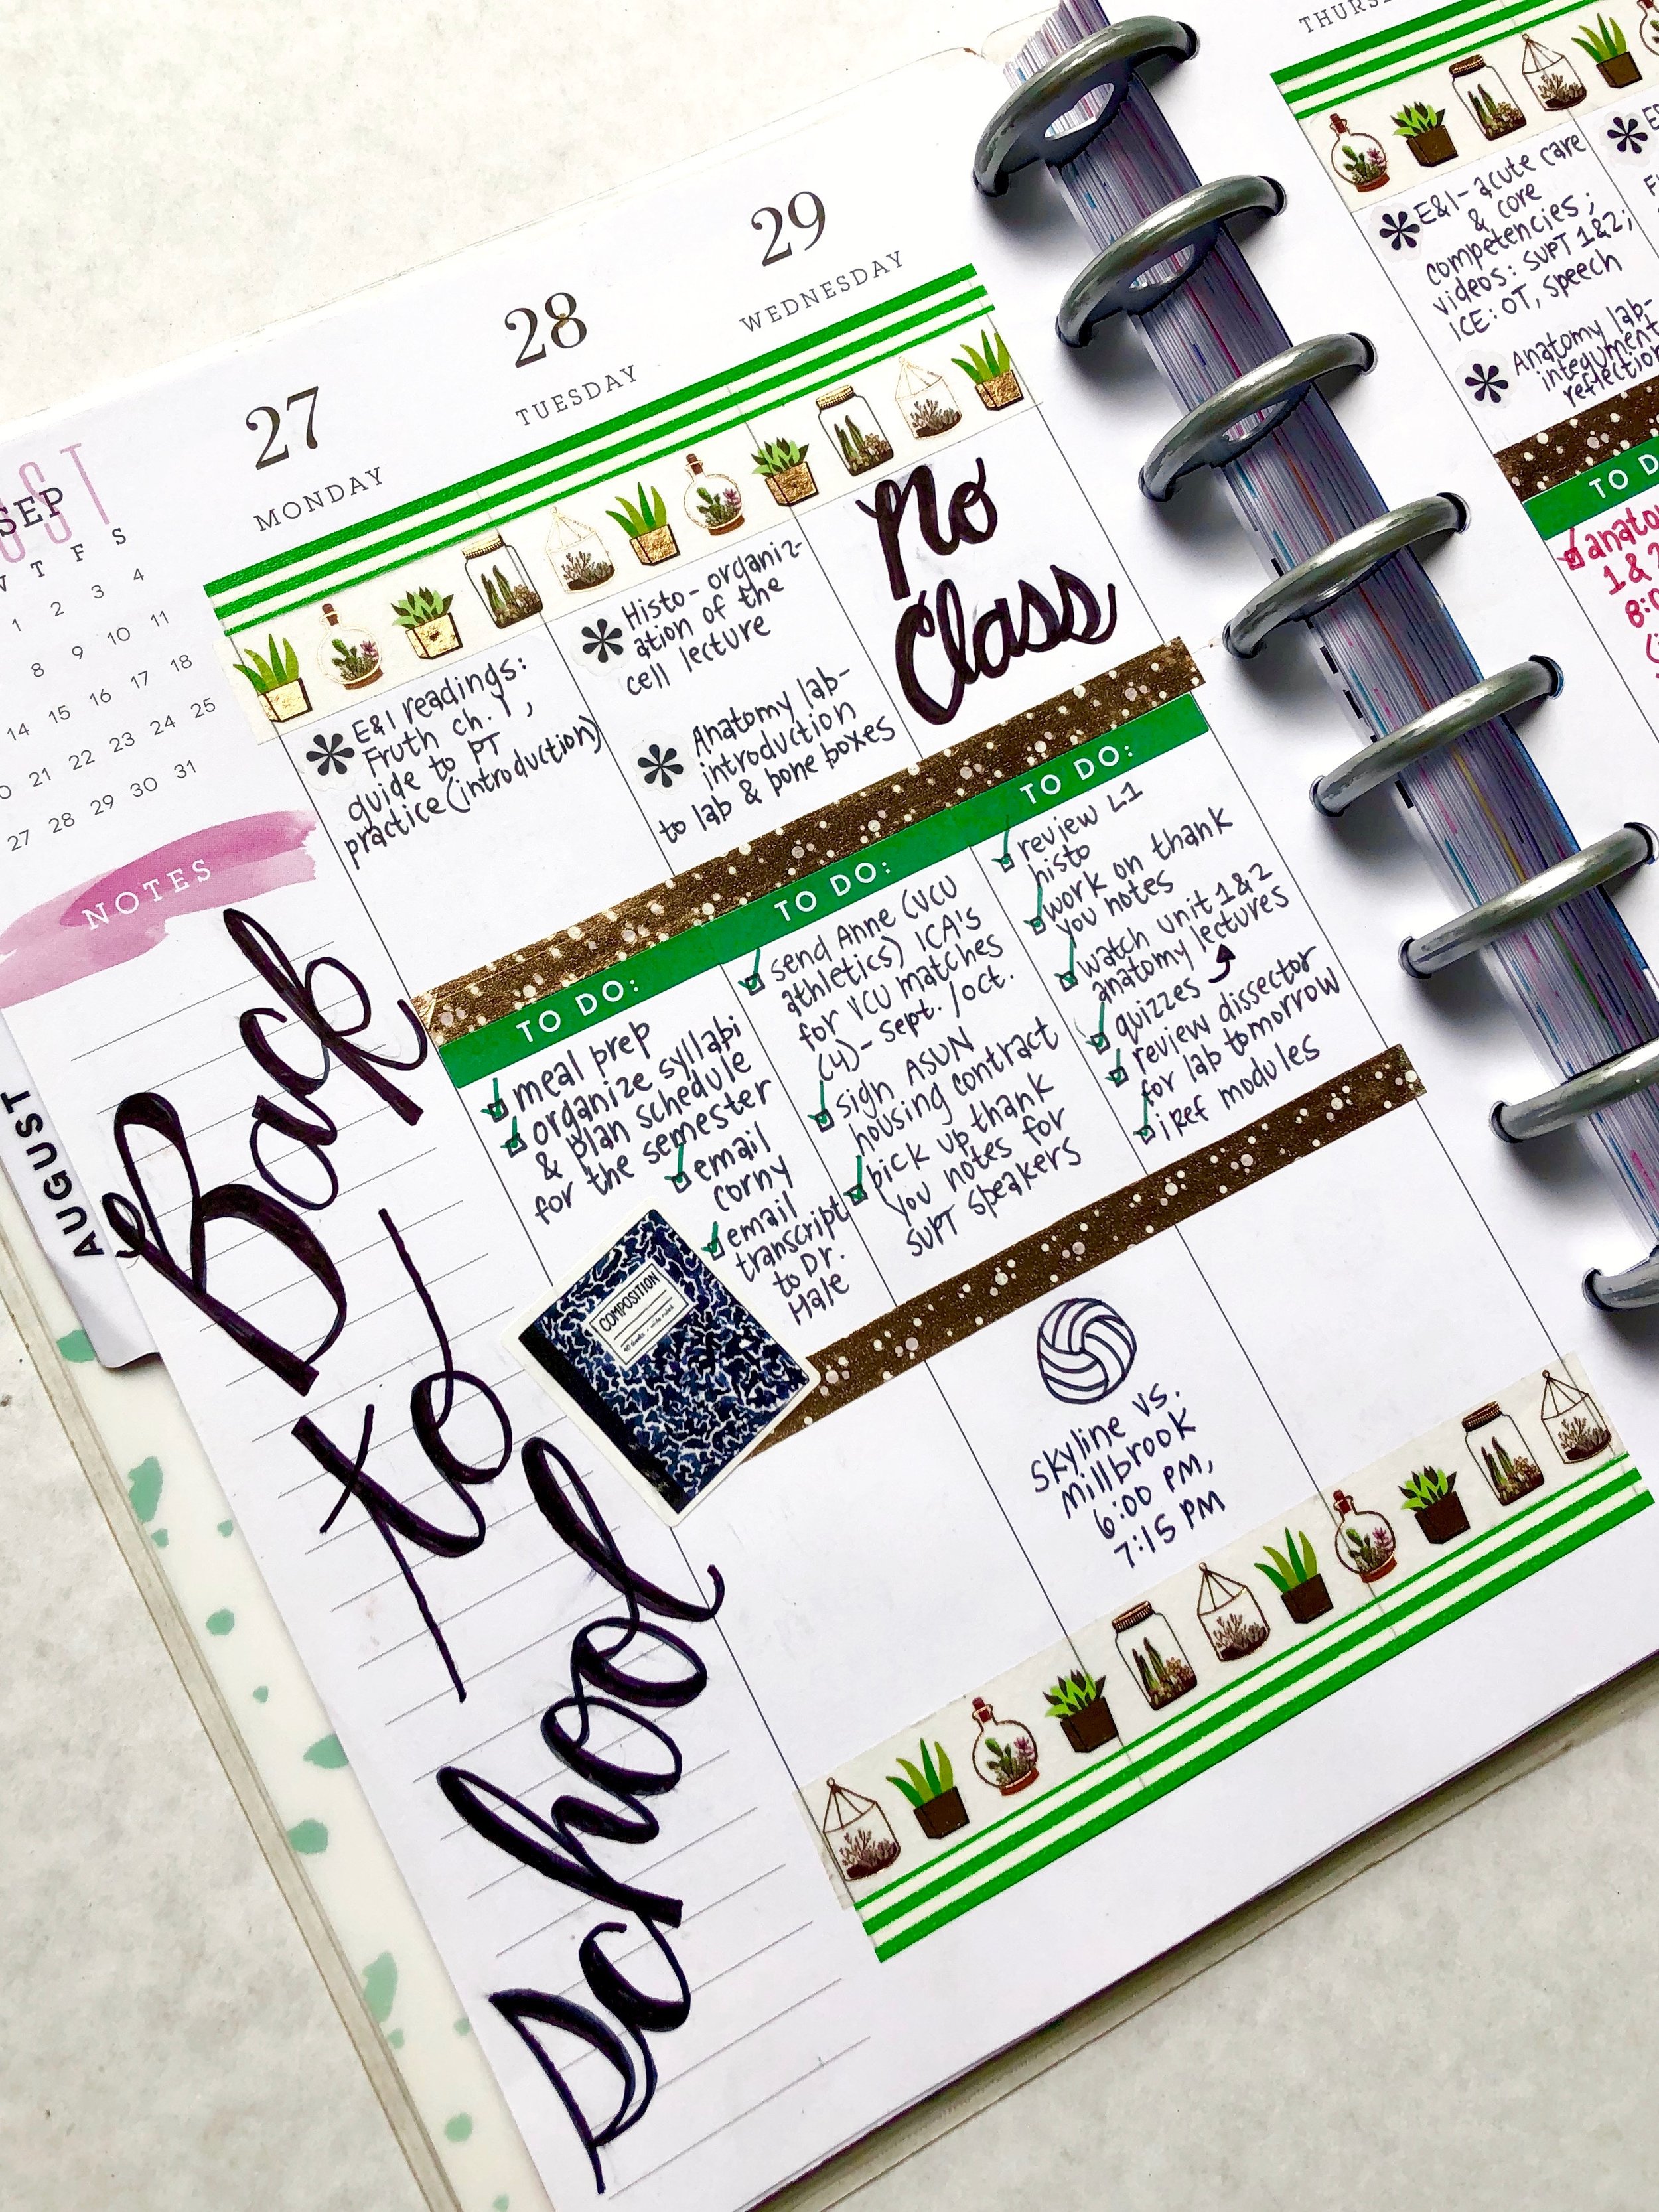 27
MONDAY
28
TUESDAY
29
WEDNESDAY
SEP
T F S
1 2 3 4
8 9 10 11
14 15 16 17 18
21 22 23 24 25
27 28 29 30 31
NOTES
AUGUST
Back
to
School
E&I readings:
Fruth ch. 1,
guide to PT
practice (introduction)
TO DO:
meal prep
organize syllabi
& plan schedule
for the semester
email
corny
email
transcript
to Dr.
Hale
COMPOSITION
Histo-organiz-
ation of the
cell lecture
Anatomy lab-
introduction
to lab & bone boxes
TO DO:
send Anne (VCU
athletics) ICA's
for VCU matches
(4)- Sept. /Oct.
sign ASUN
housing contract
pick up thank
you notes for
SVPT speakers
Skyline vs.
Millbrook
6:00 PM,
7:15 PM
No
Class
TO DO:
review L1
histo
work on thank
you notes
watch unit 1&2
anatomy lectures
quizzes
review dissector
for lab tomorrow
iRef modules
E&I- acute care
& core
competencies;
videos: SVPT 1&2;
ICE: OT, speech
Anatomy lab-
integument
reflection
TO D
1 & 2